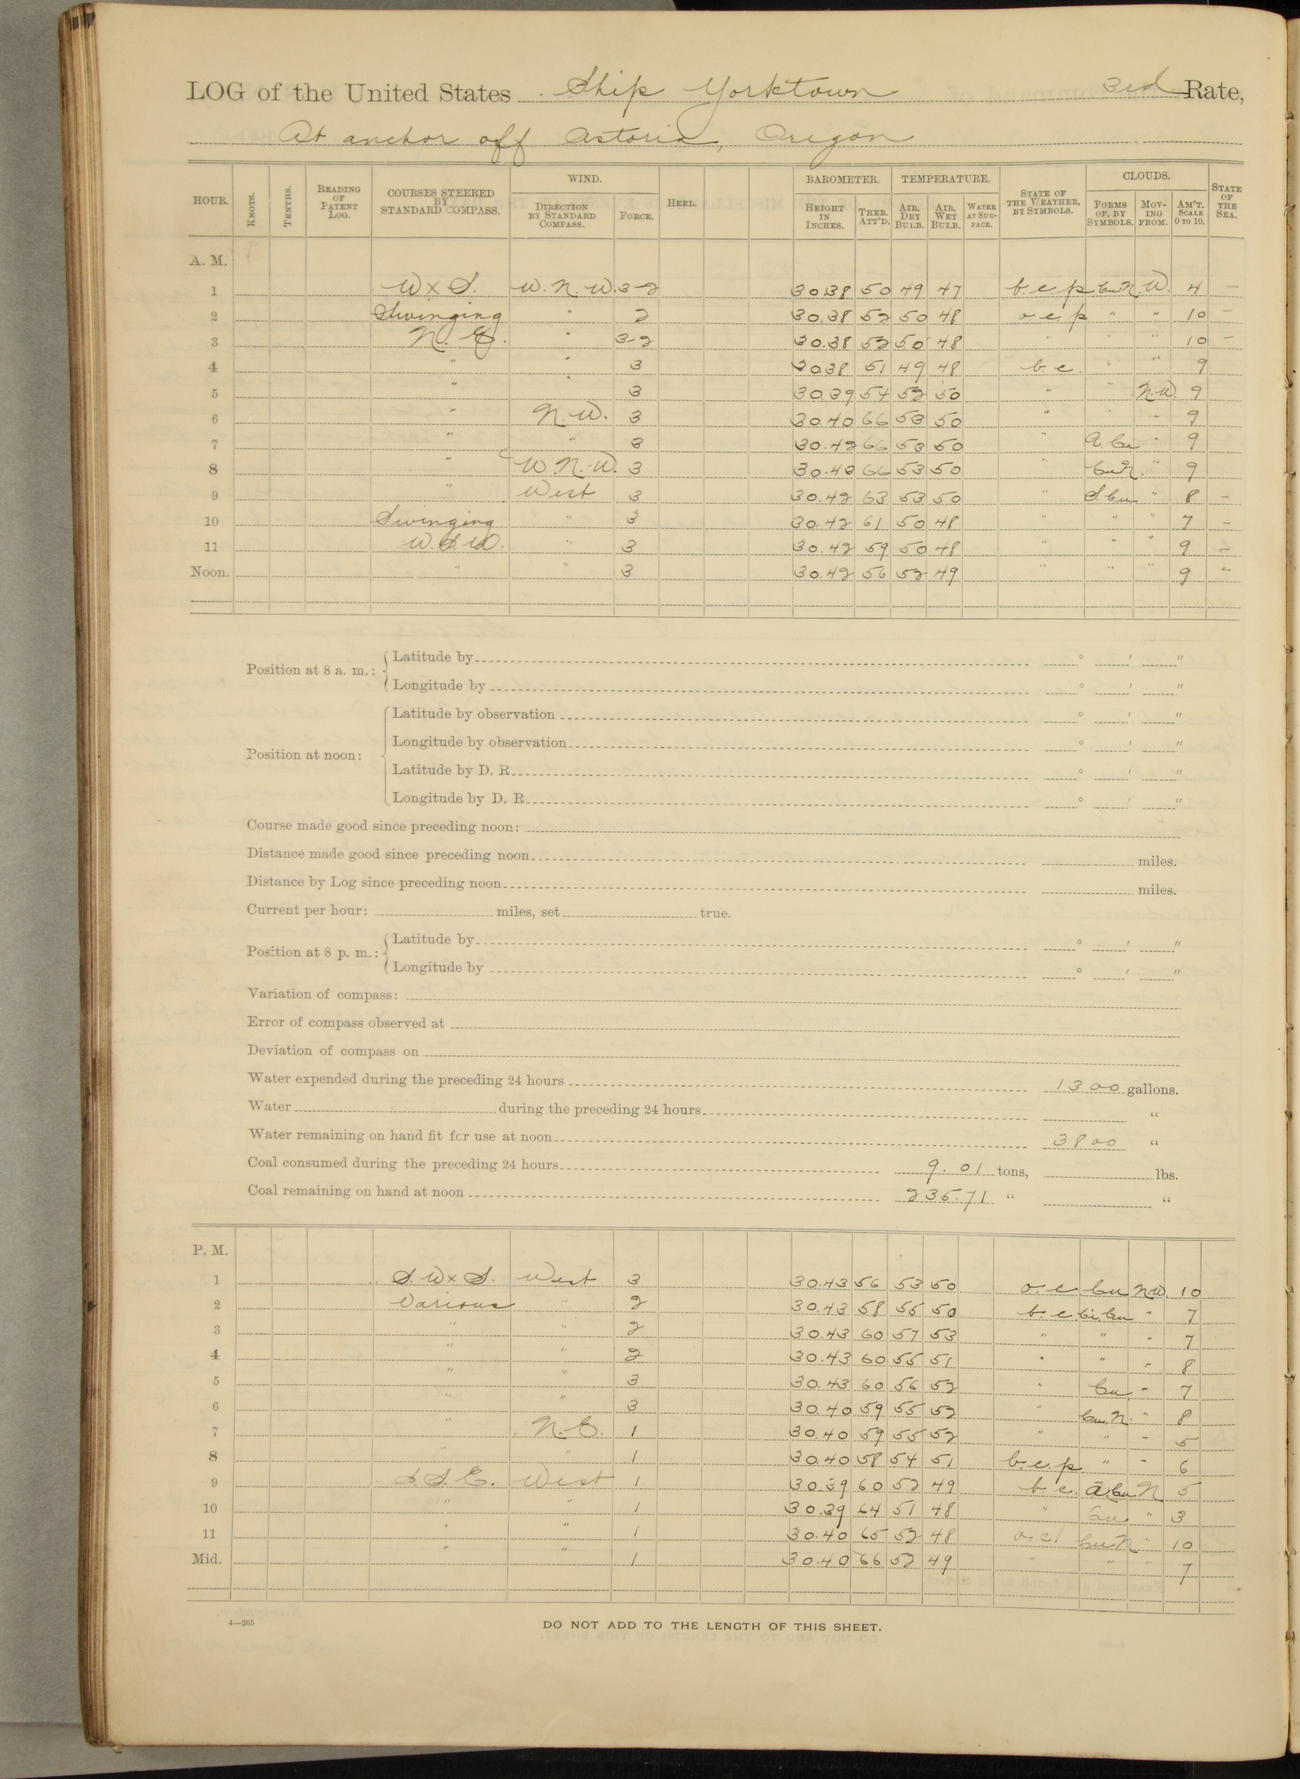 LOG of the United States Ship Yorktown 3rd Rate,
At anchor off Astoria, Oregon
HOUR. KNOTS. TENTHS. READING OF PATENT LOG. COURSES STEERED BY STANDARD COMPASS. WIND. DIRECTION BY STANDARD COMPASS. FORCE. HEEL. BAROMETER. HEIGHT IN INCHES. THER. ATT'D. TEMPERATURE. AIR, DRY BULB. AIR, WET BULB. WATER AT SUR-FACE. STATE OF THE WEATHER, BY SYMBOLS. CLOUDS. FORMS OF, BY SYMBOLS. MOV-ING FROM. AM'T. SCALE 0 TO 10. STATE OF THE SEA.
A. M.
1 W x S. W. N. W. 3-2 30.38 50 49 47 b. c. p. Cu N W. 4 —
2 Swinging " 2 30.38 52 50 48 o. c. p " " 10 —
3 N. E. " 3-2 30.38 52 50 48 " " " 10 —
4 " " 3 3038 51 49 48 b. c. " " 9
5 " 3 30.39 54 52 50 " " N.W. 9
6 " N. W. 3 30.40 66 53 50 " " 9
7 " " 3 30.42 66 53 50 " A. Cu " 9
8 " W. N. W. 3 30.43 66 53 50 " Cu N. " 9
9 " West 3 30.42 63 53 50 " S. Cu " 8 —
10 Swinging " 3 30.42 61 50 48 " " " 7 —
11 W. S. W. " 3 30.42 59 50 48 " " " 9 —
Noon. " " 3 30.42 56 52 49 " " " 9 "
Position at 8 a. m.: Latitude by ° ' "
Longitude by ° ' "
Position at noon: Latitude by observation ° ' "
Longitude by observation ° ' "
Latitude by D. R. ° ' "
Longitude by D. R. ° ' "
Course made good since preceding noon:
Distance made good since preceding noon miles.
Distance by Log since preceding noon miles.
Current per hour: miles, set true.
Position at 8 p. m.: Latitude by ° ' "
Longitude by ° ' "
Variation of compass:
Error of compass observed at
Deviation of compass on
Water expended during the preceding 24 hours 1300 gallons.
Water during the preceding 24 hours "
Water remaining on hand fit for use at noon 3800 "
Coal consumed during the preceding 24 hours 9.01 tons, lbs.
Coal remaining on hand at noon 235.71 " "
P. M.
1 S. W x S. West 3 30.43 56 53 50 o. c. Cu N.W. 10
2 Various " 2 30.43 58 55 50 b. c. Ci. Cu " 7
3 " " 2 30.43 60 57 53 " " " 7
4 " " 2 30.43 60 55 51 " " " 8
5 " " 3 30.43 60 56 52 " Cu " 7
6 " " 3 30.40 59 55 52 " Cu. N. " 8
7 " N. E. 1 30.40 59 55 52 " " " 5
8 " " 1 30.40 58 54 51 b. c. p. " " 6
9 S. S. E. West 1 30.39 60 52 49 b. c. A. Cu N 5
10 " " 1 30.39 64 51 48 " Cu " 3
11 " " 1 30.40 65 52 48 o. c. Cu N " 10
Mid. " " 1 30.40 66 52 49 " " " 7
4—265
DO NOT ADD TO THE LENGTH OF THIS SHEET.